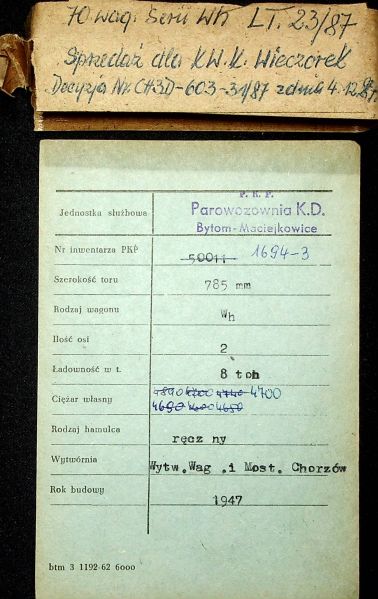 70 wag. Serii Wh LT. 23/87
Sprzedaż dla KW.K. Wieczorek
Decyzja Nr. CH3D-603-31/87 z dnia 4.12.
P. K. P.
Jednostka służbowa Parowozownia K.D.
Bytom-Maciejkowice
Nr inwentarza PKP 50011 1694-3
Szerokość toru 785 mm
Rodzaj wagonu Wh
Ilość osi 2
Ładowność w t. 8 ton
4700
Ciężar własny
4650
Rodzaj hamulca ręcz ny
Wytwórnia Wytw.Wag .i Most. Chorzów
Rok budowy 1947
btm 3 1192-62 6000